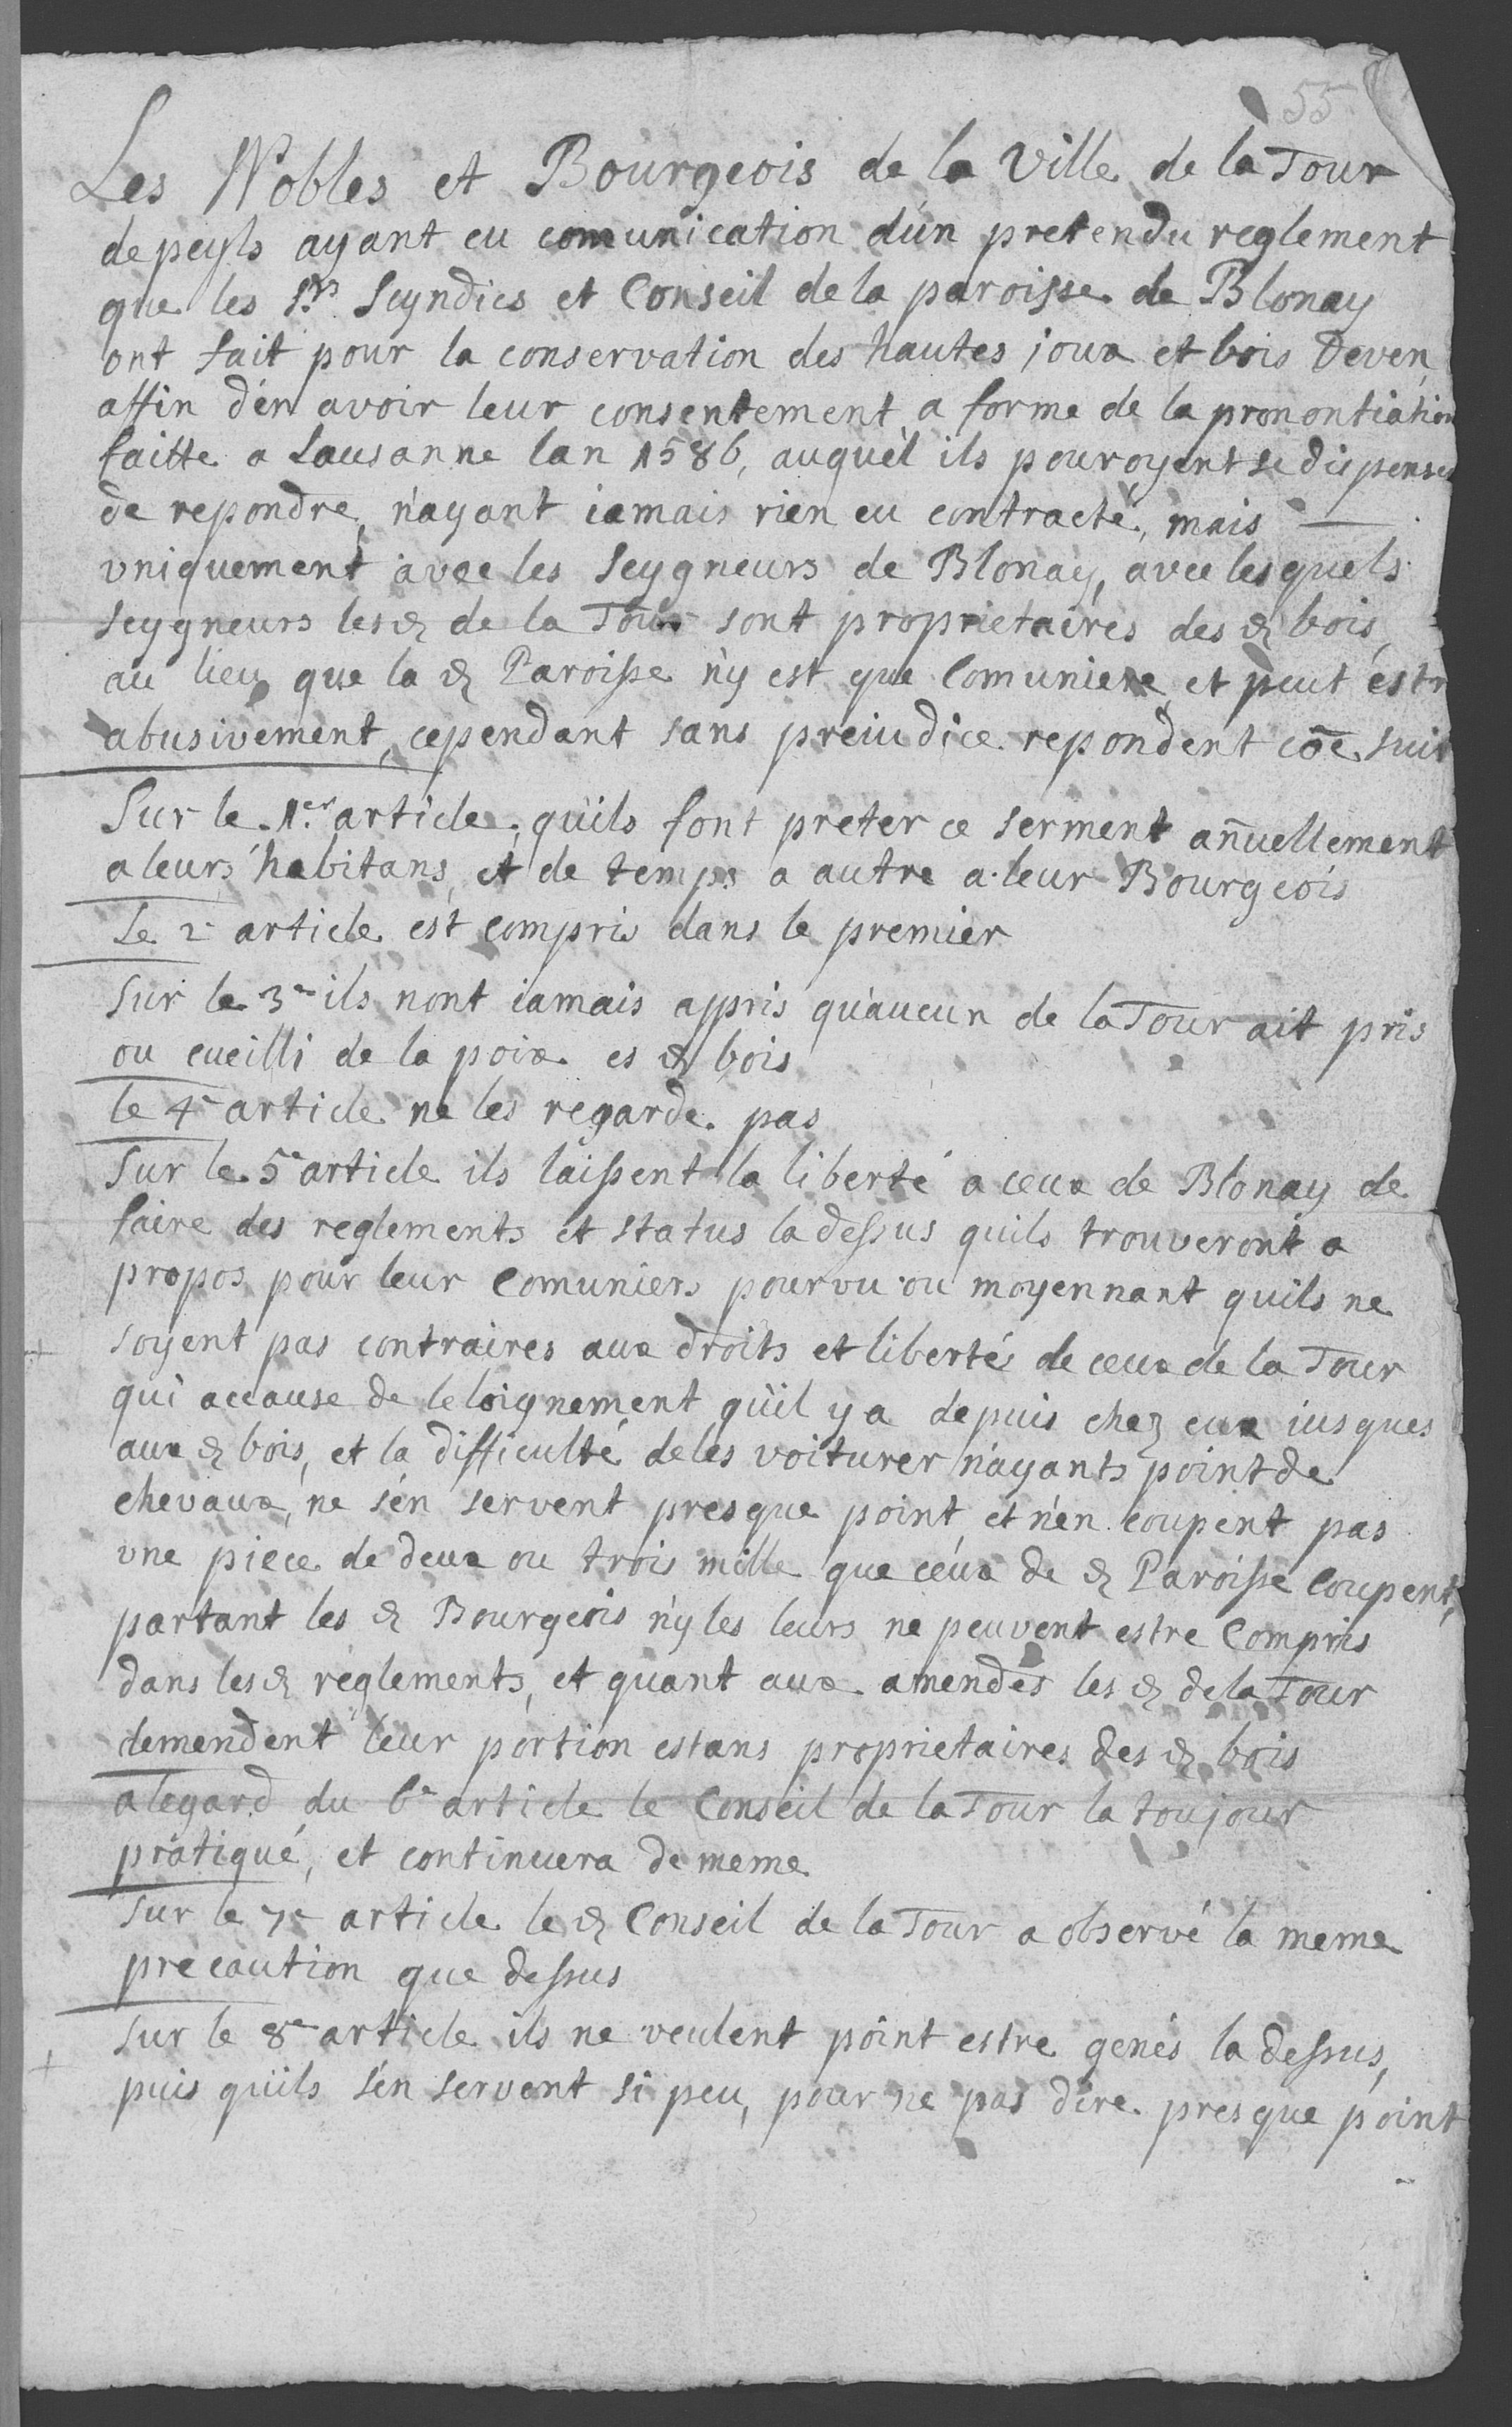 55
Les Nobles et Bourgeois de la Ville de la Tour
de peyls ayant eu comunication d'un pretendu reglement
que les Srs Scyndics et Conseil de la paroisse de Blonay
ont fait pour la conservation des hautes joux et bois Deven
affin d'en avoir leur consentement a forme de la pronontiation
faitte a Lausanne lan 1586, auquel ils pouroyent se dispenser
de repondre, n'ayant iamais rien eu contracté, mais —
vniquement avec les Seygneurs de Blonay, avec lesquels
seygneurs les d de la Tour sont proprietaires des d bois,
au lieu que la d Paroisse n'y est que Comuniere et peut estre
abusivement, cependant sans preiudice repondent cõe suit
Sur le 1er article, qu'ils font preter ce serment añuellement
a leurs habitans et de temps a autre a leur Bourgeois
Le 2e article est compris dans le premier
Sur le 3e ils nont iamais appris qu'aucun de la Tour ait pris
ou cueilli de la poix es d bois
le 4e article ne les regarde pas
Sur le 5e article ils laissent la liberté a ceux de Blonay de
faire des reglements et status la dessus quils trouveront a
propos pour leur Comuniers pourvu ou moyennant quils ne
soyent pas contraires aux droits et libertés de ceux de la Tour
qui accause de leloignement qu'il y a depuis chez eux iusques
aux d bois, et la difficulté de les voiturer n'ayants point de
chevaux, ne s'en servent presque point, et n'en coupent pas
vne piece de deux ou trois mille que ceux de d Paroisse Coupent,
partant les d Bourgeois n'y les leurs ne peuvent estre Compris
dans les d reglements, et quant aux amendes les d de la Tour
demendent leur portion estans proprietaires des d bois
a legard du 6e article le Conseil de la Tour la toujour
pratiqué, et continuera de meme
Sur le 7e article le d Conseil de la Tour a observé la meme
precaution que dessus
Sur le 8e article ils ne veulent point estre genés la dessus,
puis qu'ils s'en servent si peu, pour ne pas dire presque point